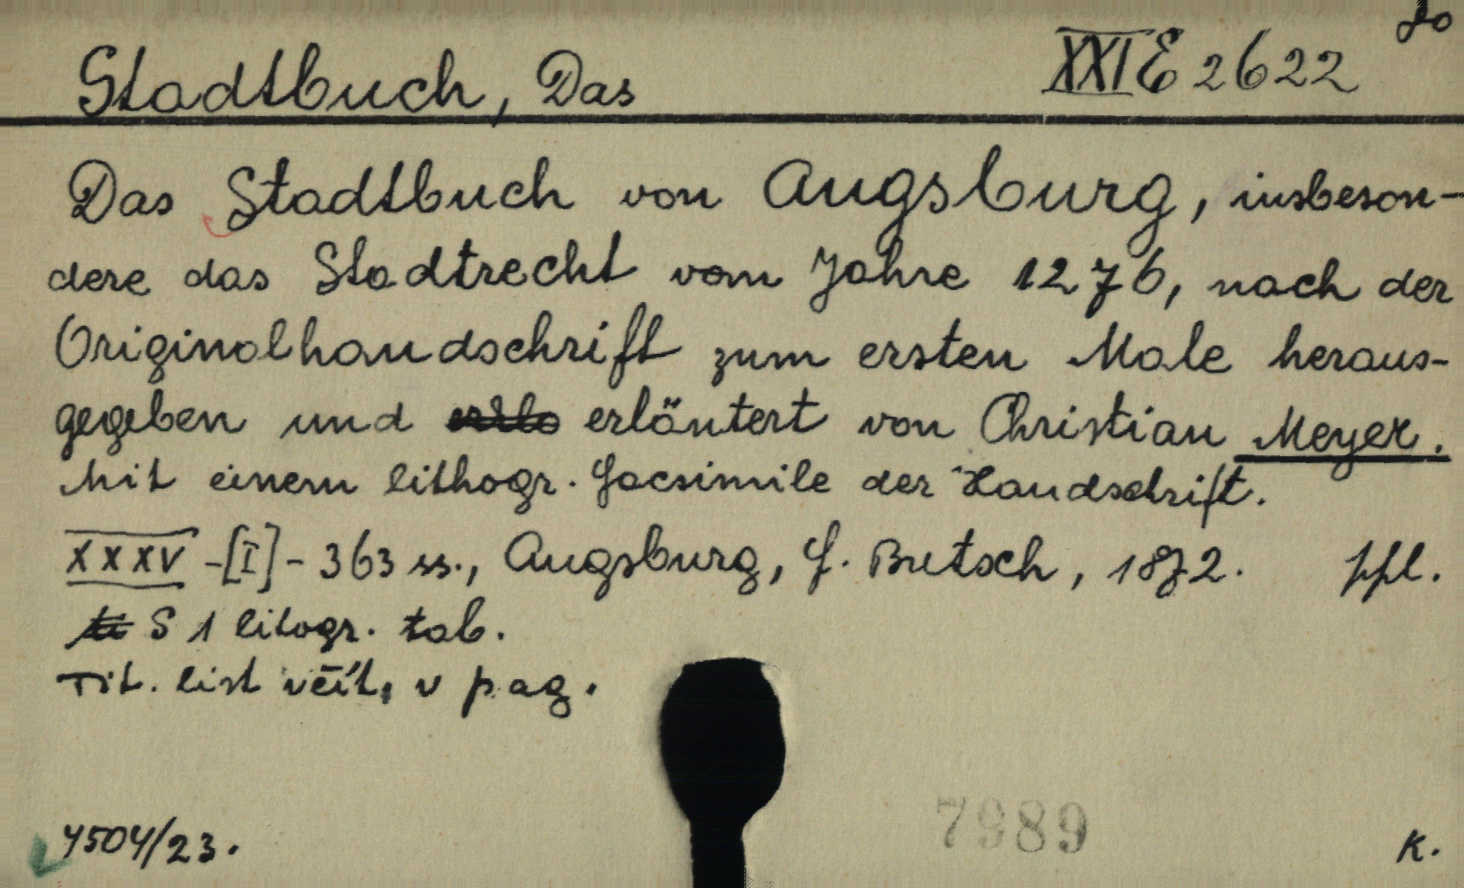 Stadtbuch, Das XXI E 2622
Das Stadtbuch von Augsburg, insbeson-
dere das Stadtrecht vom Jahre 1276, nach der
Originalhandschrift zum ersten Male heraus-
gegeben und erläutert von Christian Meyer.
Mit einem lithogr. Facsimile der Handschrift.
XXXV-[I]-363 ss., Augsburg, F. Butsch, 1872. ppl.
S 1 litogr. tab.
Tit. list včít. v pag.
4504/23. 7989 K.